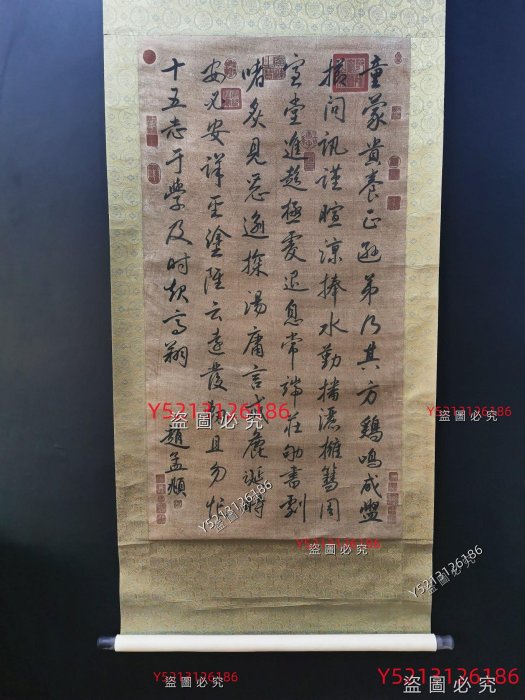 童蒙貴養正遜弟乃其方鷄鳴咸盥
櫛問訊謹暄涼捧水勤播灑擁篲周
室堂進趨極虔退息常端莊劬書劇
嗜炙見惡逾探湯庸言戒麁誕時
必安詳聖塗雖云遠發軔且勿忙
十五志于學及时起高翔
趙孟頫
Y5213126186
盜圖必究
Y5213126186
盜圖必究
Y5213126186
盜圖必究
Y5213126186
盜圖必究
Y5213126186
盜圖必究
Y5213126186
盜圖必究
Y5213126186
盜圖必究